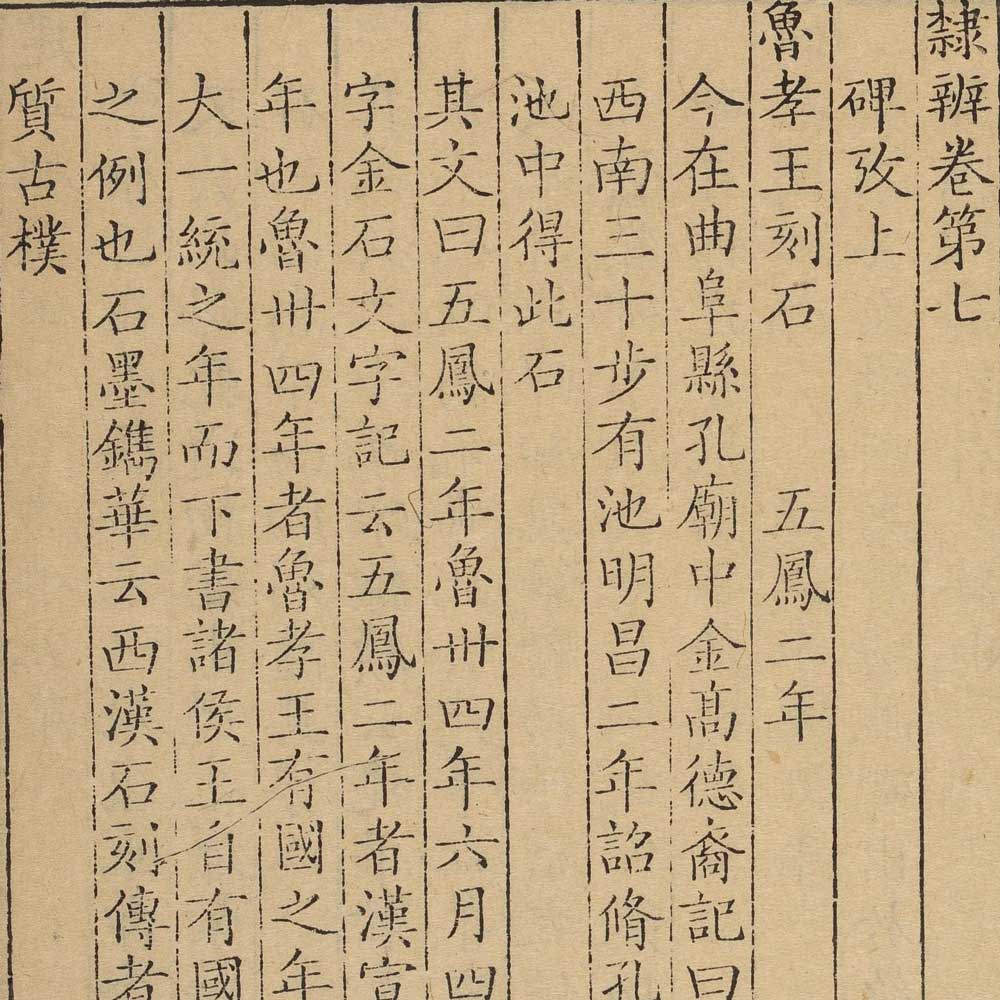 隸辨卷第七
碑攷上
魯孝王刻石 五鳳二年
今在曲阜縣孔廟中金高德裔記曰
西南三十步有池明昌二年詔脩孔
池中得此石
其文曰五鳳二年魯卅四年六月四
字金石文字記云五鳳二年者漢宣
年也魯卅四年者魯孝王有國之年
大一統之年而下書諸侯王自有國
之例也石墨鐫華云西漢石刻傳者
質古樸